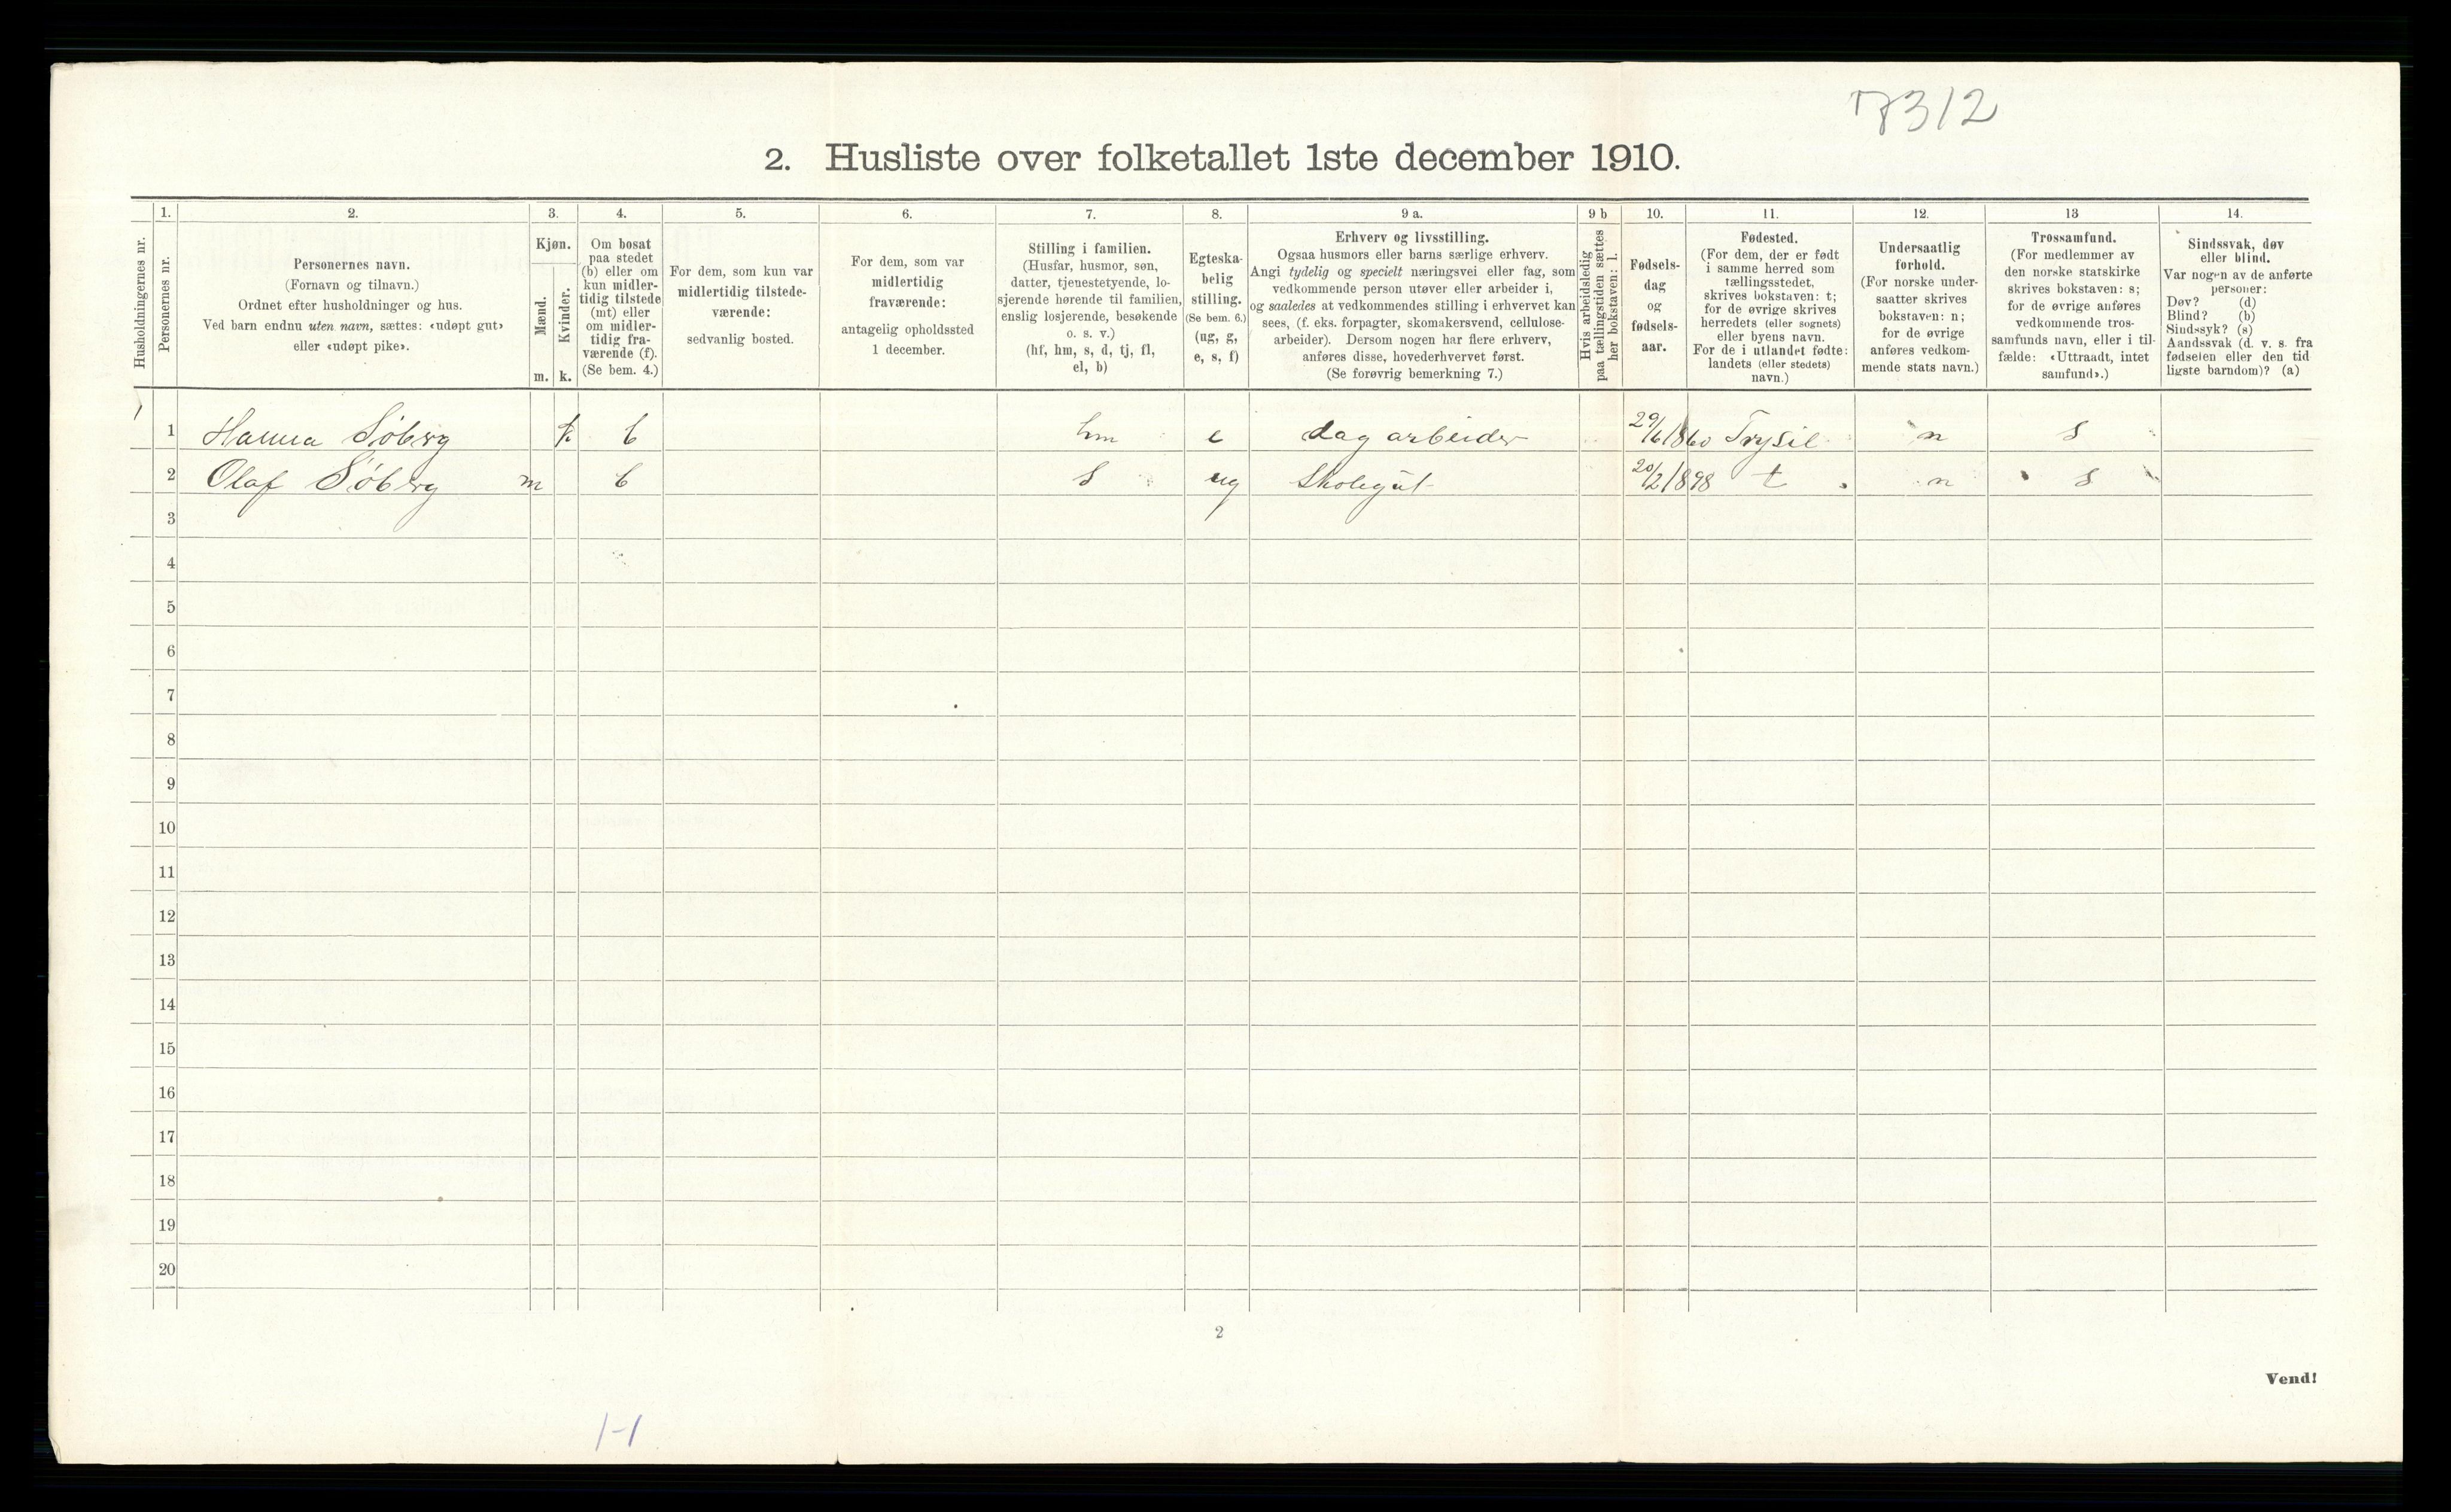 7312
2. Husliste over folketallet 1ste december 1910.
1. 2. 3. 4. 5. 6. 7. 8. 9 a. 9 b 10. 11. 12. 13 14.
Husholdningernes nr.
Personernes nr.
Personernes navn.
(Fornavn og tilnavn.)
Ordnet efter husholdninger og hus.
Ved barn endnu uten navn, sættes: «udøpt gut»
eller «udøpt pike».
Kjøn.
Mænd.
Kvinder.
m. k.
Om bosat
paa stedet
(b) eller om
kun midler-
tidig tilstede
(mt) eller
om midler-
tidig fra-
værende (f).
(Se bem. 4.)
For dem, som kun var
midlertidig tilstede-
værende:
sedvanlig bosted.
For dem, som var
midlertidig
fraværende:
antagelig opholdssted
1 december.
Stilling i familien.
(Husfar, husmor, søn,
datter, tjenestetyende, lo-
sjerende hørende til familien,
enslig losjerende, besøkende
o. s. v.)
(hf, hm, s, d, tj, fl,
el, b)
Egteska-
belig
stilling.
(Se bem. 6.)
(ug, g,
e, s, f)
Erhverv og livsstilling.
Ogsaa husmors eller barns særlige erhverv.
Angi tydelig og specielt næringsvei eller fag, som
vedkommende person utøver eller arbeider i,
og saaledes at vedkommendes stilling i erhvervet kan
sees, (f. eks. forpagter, skomakersvend, cellulose-
arbeider). Dersom nogen har flere erhverv,
anføres disse, hovederhvervet først.
(Se forøvrig bemerkning 7.)
Hvis arbeidsledig
paa tællingstiden sættes
her bokstaven: l.
Fødsels-
dag
og
fødsels-
aar.
Fødested.
(For dem, der er født
i samme herred som
tællingsstedet,
skrives bokstaven: t;
for de øvrige skrives
herredets (eller sognets)
eller byens navn.
For de i utlandet fødte:
landets (eller stedets)
navn.)
Undersaatlig
forhold.
(For norske under-
saatter skrives
bokstaven: n;
for de øvrige
anføres vedkom-
mende stats navn.)
Trossamfund.
(For medlemmer av
den norske statskirke
skrives bokstaven: s;
for de øvrige anføres
vedkommende tros-
samfunds navn, eller i til-
fælde: «Uttraadt, intet
samfund».)
Sindssvak, døv
eller blind.
Var nogen av de anførte
personer:
Døv? (d)
Blind? (b)
Sindssyk? (s)
Aandssvak (d. v. s. fra
fødselen eller den tid
ligste barndom)? (a)
1 1 Hanna Söberg k b hm e dag arbeider 29/6 1860 Trysil n s
2 Olaf Söberg m b s ug Skolegut 20/2 1898 t n s
3
4
5
6
7
8
9
10
11
12
13
14
15
16
17
18
19
20
2
Vend!
1-1